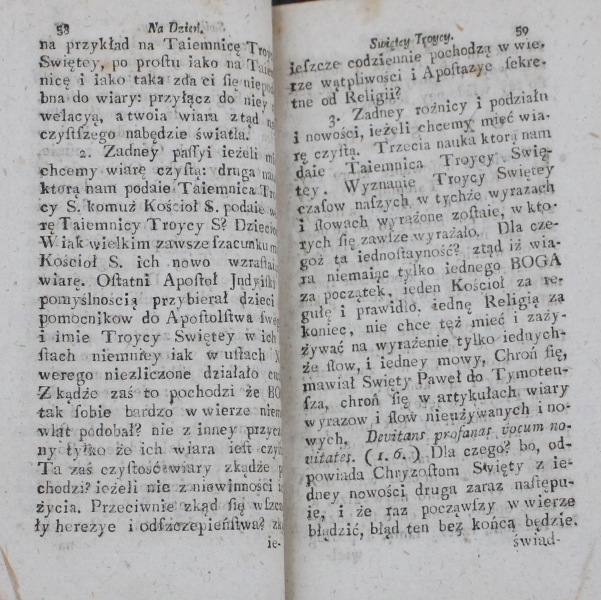 58 Na Dzień.
na przykład na Taiemnicę
Swiętey, po prostu iako na
nicę i iako taka zda ci się
bna do wiary: przyłącz do niey
welacyą, a twoia wiara ztąd
czyſtſzego nabędzie światła.
2. Zadney paſſyi ieżeli
chcemy wiarę czyſtą: druga
ktorą nam podaie Taiemnica
cy S. komuż Kościoł S. podaie
rę Taiemnicy Troycy S?
W iak wielkim zawsze szacunku
Kościoł S. ich nowo
wiarę. Oſtatni Apoſtoł
pomyślnością przybierał dzieci
pomocnikow do Apoſtolſtwa
i imie Troycy Swiętey w ich
ſtach niemniey iak w uſtach
werego niezliczone działało
Zkądże zaś to pochodzi że
tak ſobie bardzo w wierze
wląt podobał? nie z inney
ny tylko że ich wiara ieſt
Ta zaś czyſtość wiary zkądże
chodzi? ieżeli nie z niewinności
życia. Przeciwnie zkąd ſię
ły herezye i odſzczepieńſtwa?
ie-
Swiętey Troycy. 59
ieſzcze codziennie pochodzą w wie-
rze wątpliwości i Apoſtazye ſekre-
tne od Religii?
3. Zadney rożnicy i podziału
i nowości, ieżeli chcemy mieć wia-
rę czyſtą. Trzecia nauka ktorą nam
daie Taiemnica Troycy Swię-
tey. Wyznanie Troycy Swiętey
czaſow naſzych w tychże wyrazach
i ſłowach wyrażone zoſtaie, w kto-
rych ſię zawſze wyrażało. Dla cze-
goż ta iednoſtayność? ztąd iż wia-
ra niemaiąc tylko iednego BOGA
za początek, ieden Kościoł za re-
gułę i prawidło, iednę Religią za
koniec, nie chce też mieć i zaży-
żywać na wyrażenie tylko iednych-
że ſłow, i iedney mowy, Chroń ſię,
mawiał Swięty Paweł do Tymoteu-
ſza, chroń ſię w artykułach wiary
wyrazow i ſłow nieużywanych i no-
wych. Devitans profanas vocum no-
vitates. (1. 6.) Dla czego? bo, od-
powiada Chryzoſtom Swięty z ie-
dney nowości druga zaraz naſtępu-
ie, i że raz począwſzy w wierze
błądzić, błąd ten bez końca będzie.
świad-